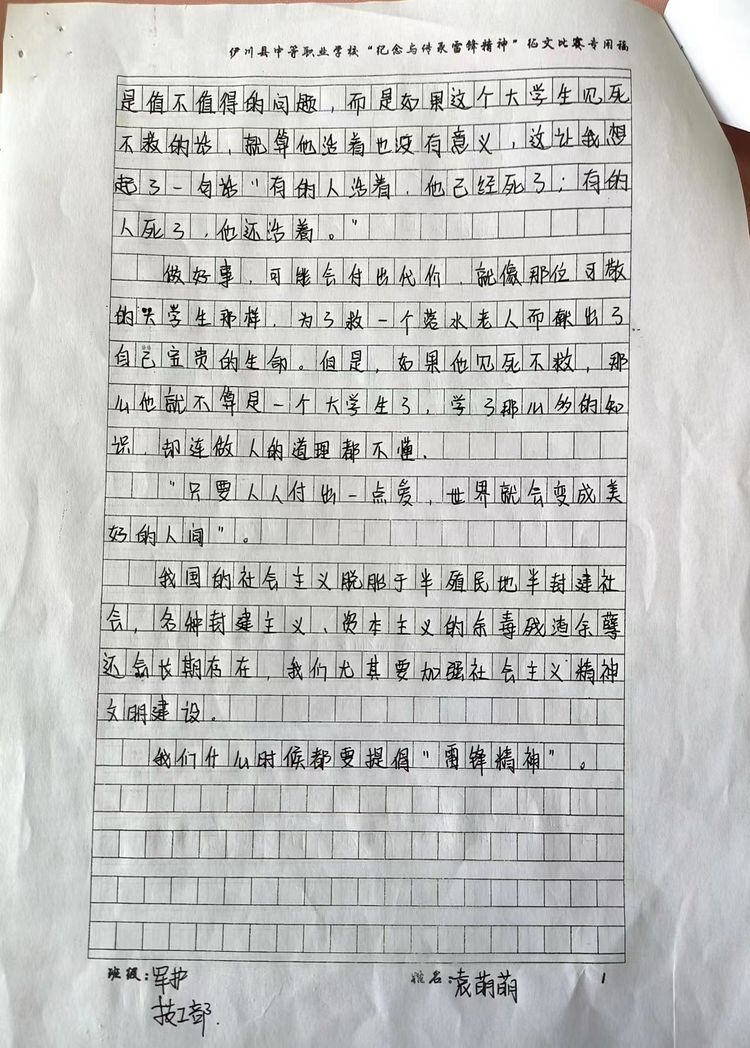 伊川县中等职业学校“纪念与传承雷锋精神”征文比赛专用稿
是值不值得的问题，而是如果这个大学生见死
不救的话，就算他活着也没有意义，这让我想
起了一句话“有的人活着，他已经死了；有的
人死了，他还活着。”
做好事，可能会付出代价，就像那位可敬
的大学生那样，为了救一个落水老人而献出了
自己宝贵的生命。但是，如果他见死不救，那
么他就不算是一个大学生了，学了那么多的知
识，却连做人的道理都不懂．
“只要人人付出一点爱，世界就会变成美
好的人间”。
我国的社会主义脱胎于半殖民地半封建社
会，各种封建主义、资本主义的余毒残渣余孽
还会长期存在，我们尤其要加强社会主义精神
文明建设。
我们什么时候都要提倡“雷锋精神”。
班级：军护 姓名：袁萌萌 1
技工部．